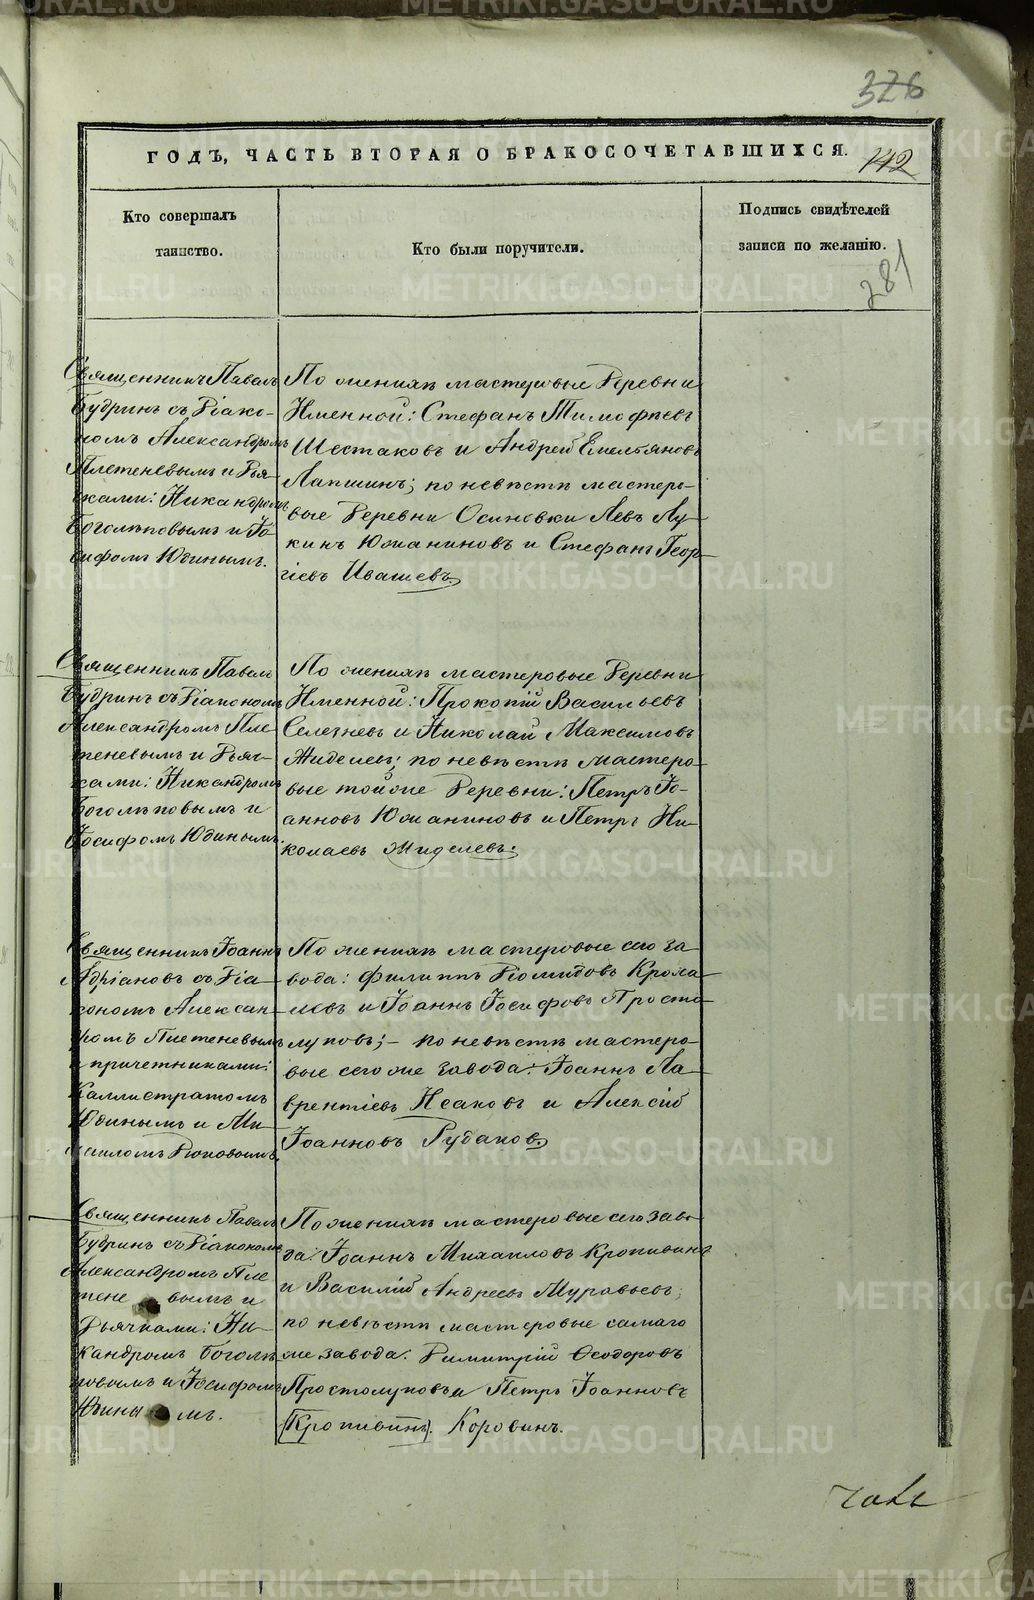 METRIKI.GASO-URAL.RU
326
ГОДЪ, ЧАСТЬ ВТОРАЯ О БРАКОСОЧЕТАВШИХСЯ.
142
Кто совершалъ
таинство.
Кто были поручители.
Подпись свидѣтелей
записи по желанію.
281
Священникъ Павелъ
Будринъ съ Діако-
номъ Александромъ
Плетеневымъ и Дья-
чками: Никандромъ
Боголѣповымъ и Іо-
сифомъ Юдинымъ.
По женихѣ мастеровые деревни
Именной: Стефанъ Тимофѣевъ
Шестаковъ и Андрей Емельяновъ
Лапшинъ; по невѣстѣ мастеро-
вые деревни Осиновки Левъ Лу-
кинъ Южаниновъ и Стефанъ Геор-
гіевъ Ивашевъ.
Священникъ Павелъ
Будринъ съ Діакономъ
Александромъ Пле-
теневымъ и Дьяч-
ками: Никандромъ
Боголѣповымъ и
Іосифомъ Юдинымъ.
По женихѣ мастеровые деревни
Именной: Прокопій Васильевъ
Селезневъ и Николай Максимовъ
Жиделевъ; по невѣстѣ мастеро-
вые той же деревни: Петръ Іо-
анновъ Южаниновъ и Петръ Ни-
колаевъ Жиделевъ.
Священникъ Іоаннъ
Адріановъ съ Діа-
кономъ Алексан-
дромъ Плетеневымъ
и причетниками:
Каллистратомъ
Юдинымъ и Ми-
хаиломъ
По женихѣ мастеровые сего за-
вода: Филиппъ Діомидовъ
и Іоаннъ Іосифовъ Просто-
луповъ; – по невѣстѣ мастеро-
вые сего же завода: Іоаннъ Ла-
врентіевъ Исаковъ и Алексій
Іоанновъ Рудаковъ.
Священникъ Павелъ
Будринъ съ Діакономъ
Александромъ Пле
тене вымъ и
Дьячками: Ни-
кандромъ Боголѣ-
повымъ и Іосифомъ
Юдины мъ.
По женихѣ мастеровые сего заво-
да: Іоаннъ Михаиловъ Кропивинъ
и Василій Андреевъ Муравьевъ;
по невѣстѣ мастеровые самаго
же завода: Димитрій Ѳеодоровъ
Простолуповъ и Петръ Іоанновъ
(Кропивинъ). Коровинъ.